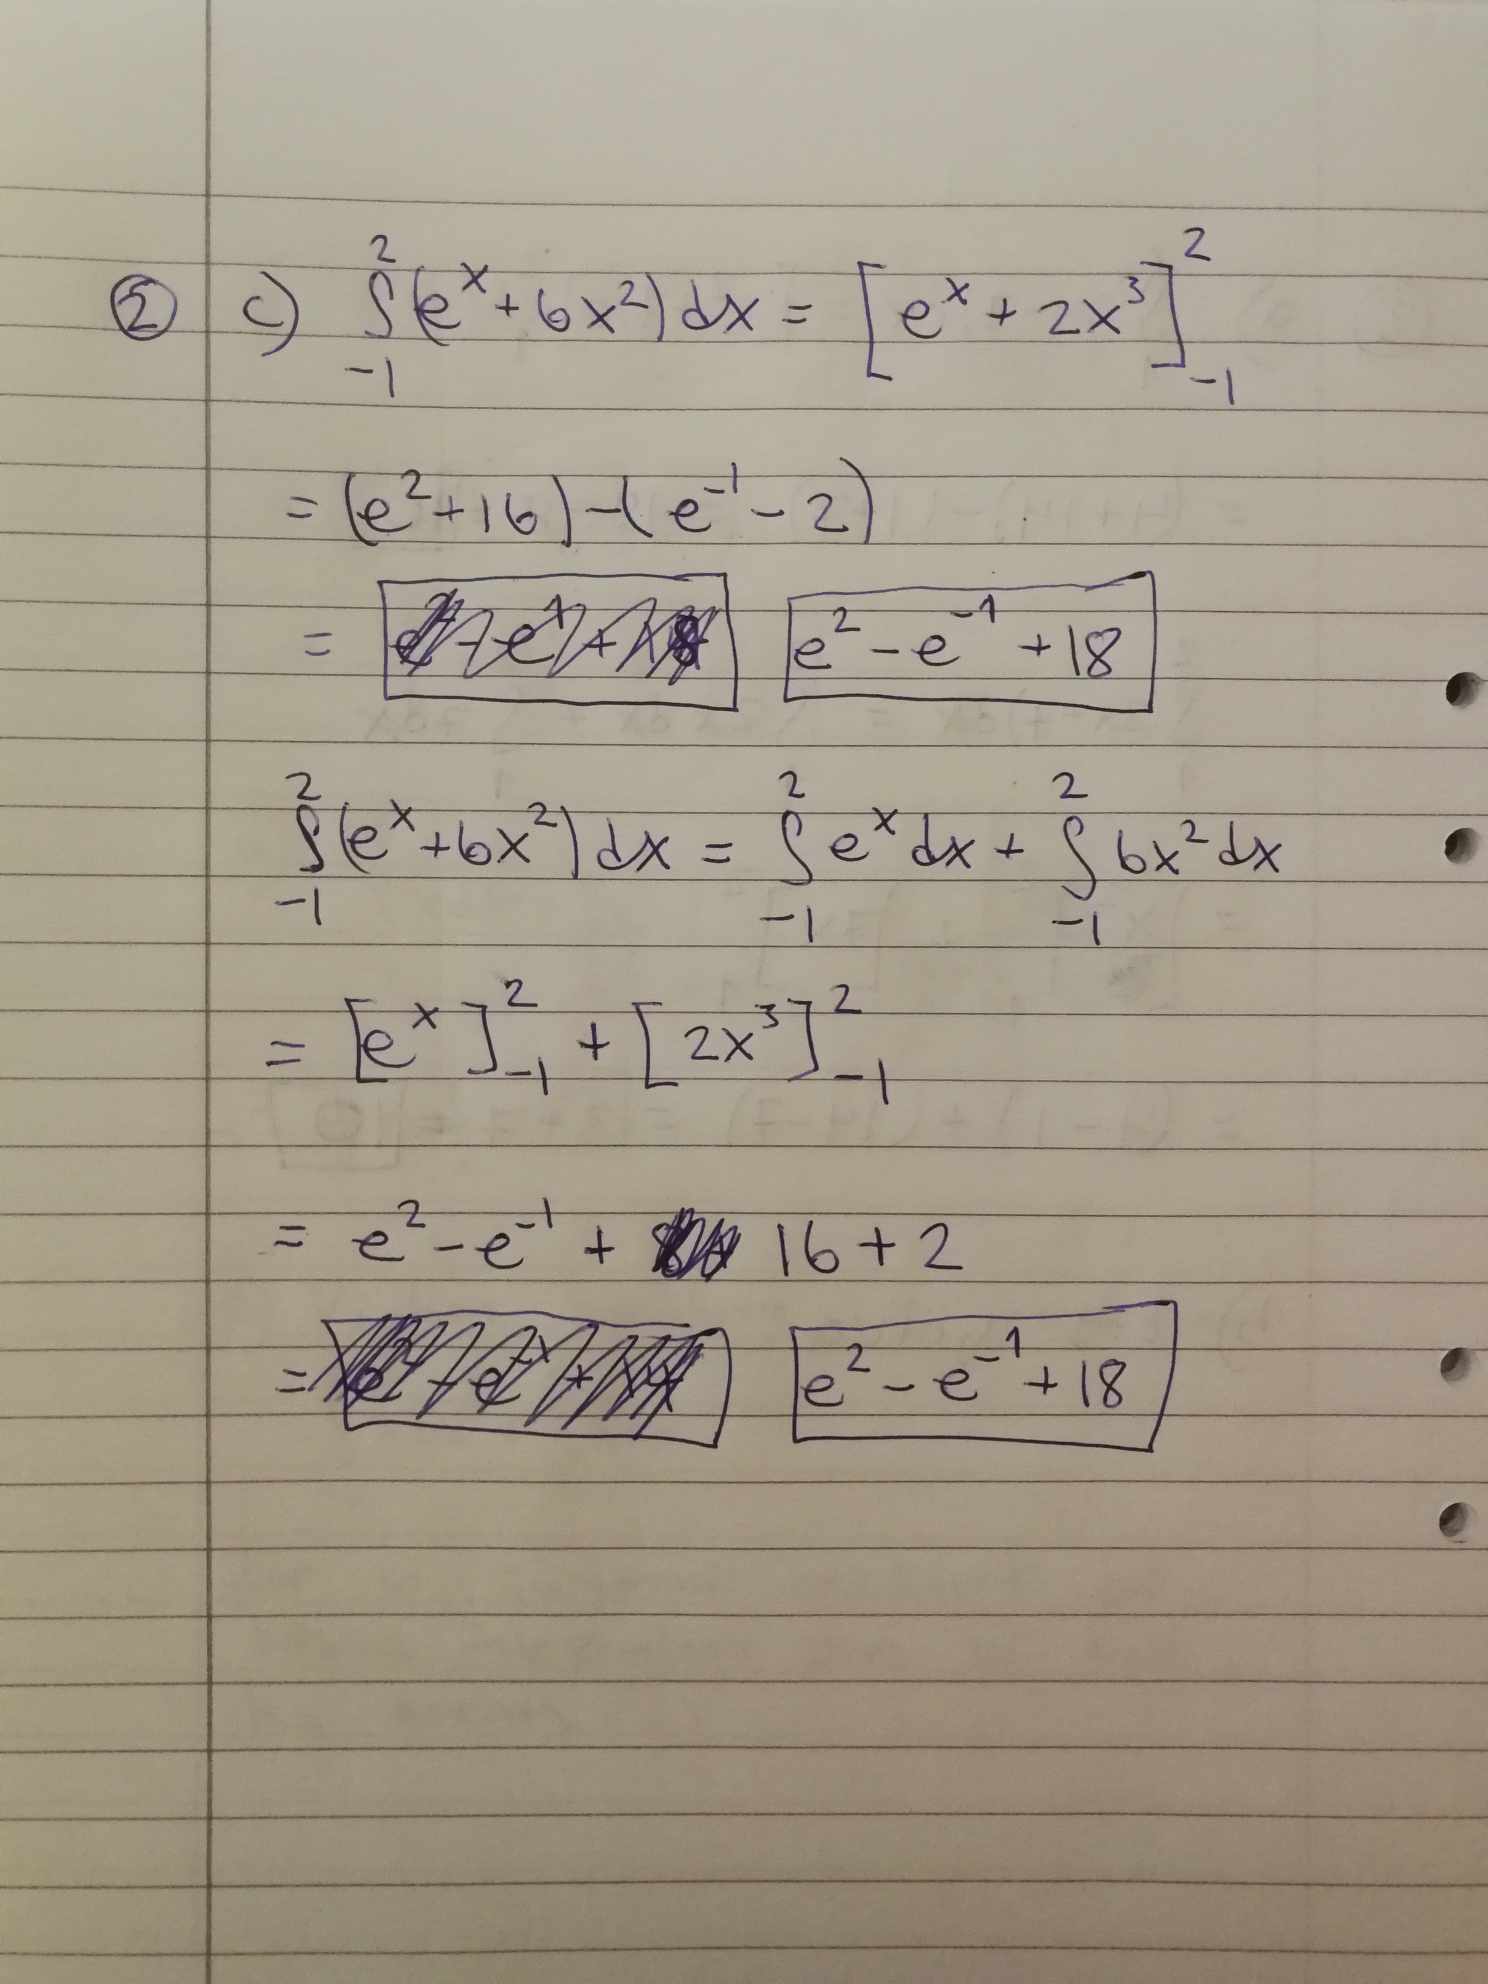 ② c) ∫₋₁² (eˣ + 6x²) dx = [eˣ + 2x³]₋₁²
= (e² + 16) - (e⁻¹ - 2)
= e² - e⁻¹ + 18
∫₋₁² (eˣ + 6x²) dx = ∫₋₁² eˣ dx + ∫₋₁² 6x² dx
= [eˣ]₋₁² + [2x³]₋₁²
= e² - e⁻¹ + 16 + 2
= e² - e⁻¹ + 18